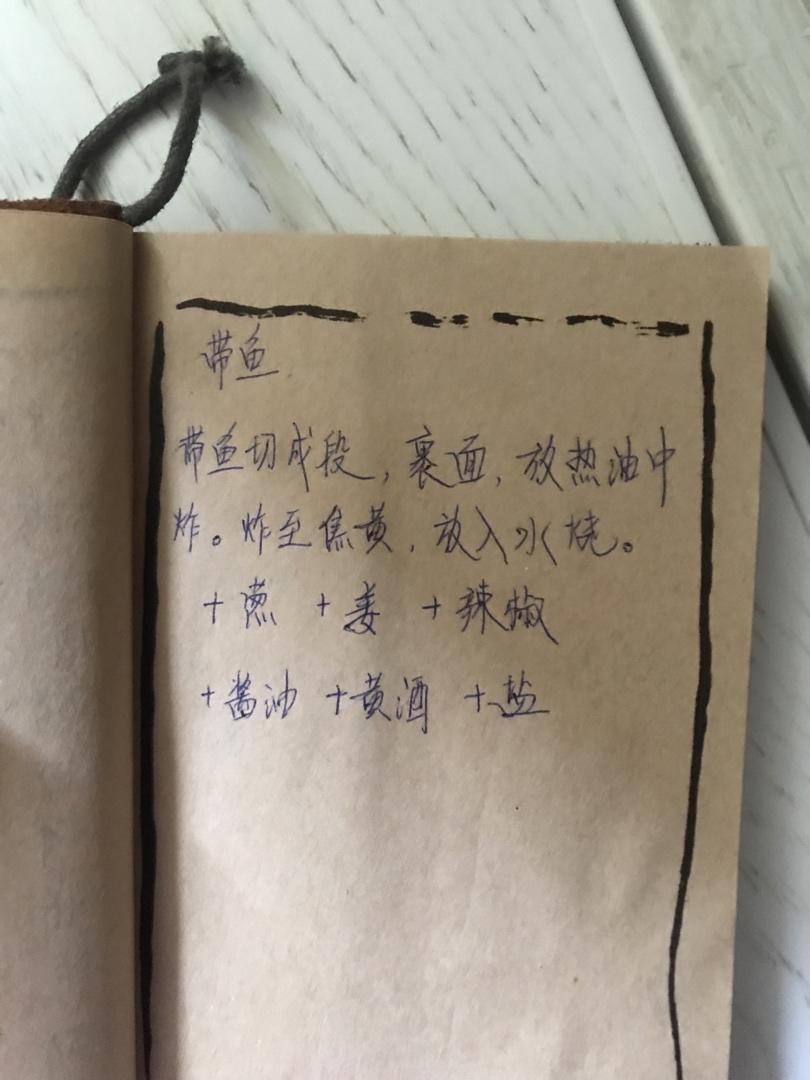 带鱼
带鱼切成段，裹面，放热油中
炸。炸至焦黄，放入水烧。
+葱 +姜 +辣椒
+酱油 +黄酒 +盐